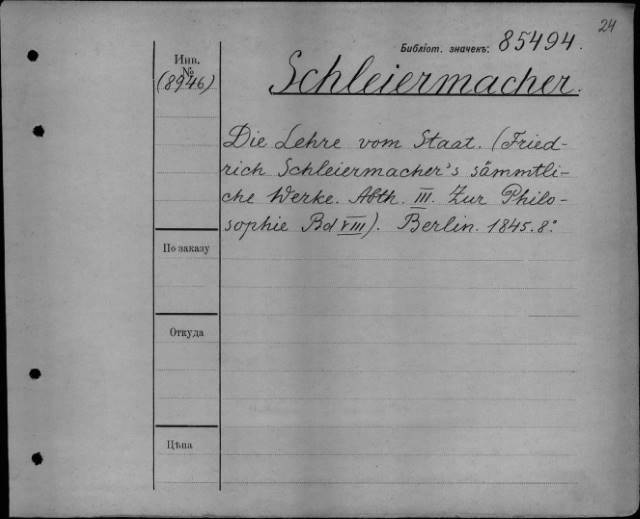 24
Библіот. значекъ: 85494.
Инв.
№
(8946)
Schleiermacher.
Die Lehre vom Staat. (Fried-
rich Schleiermacher's sämmtli-
che Werke. Abth. III. Zur Philo-
sophie Bd VIII). Berlin. 1845. 8°
По заказу
Откуда
Цѣна